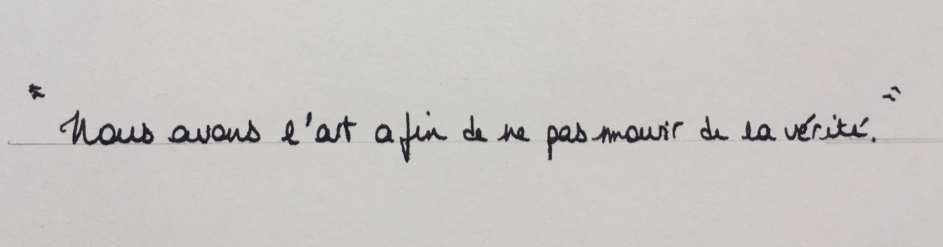 "Nous avons l'art afin de ne pas mourir de la vérité."